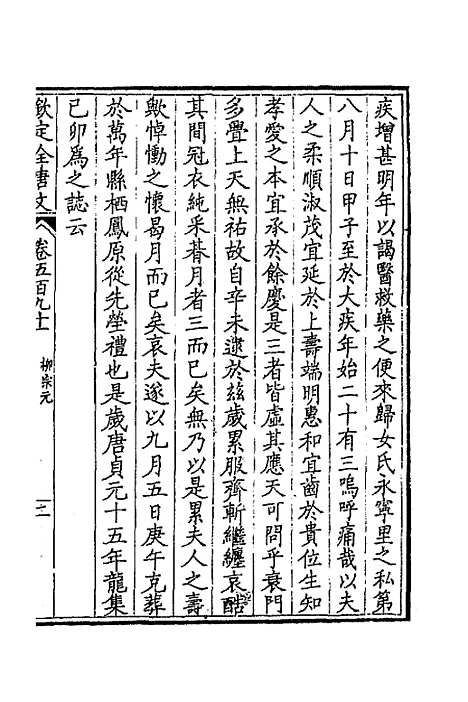 疾增甚明年以謁醫救藥之便來歸女氏永寧里之私第
八月十日甲子至於大疾年始二十有三嗚呼痛哉以夫
人之柔順淑茂宜延於上壽端明惠和宜齒於貴位生知
孝愛之本宜承於餘慶是三者皆虛其應天可問乎衰門
多釁上天無祐故自辛未逮於茲歲累服齊斬繼纏哀酷
其間冠衣純采朞月者三而已矣無乃以是累夫人之壽
歟悼慟之懷曷月而已矣哀夫遂以九月五日庚午克葬
於萬年縣栖鳳原從先塋禮也是歲唐貞元十五年龍集
己卯爲之誌云
欽定全唐文 卷五百九十 柳宗元